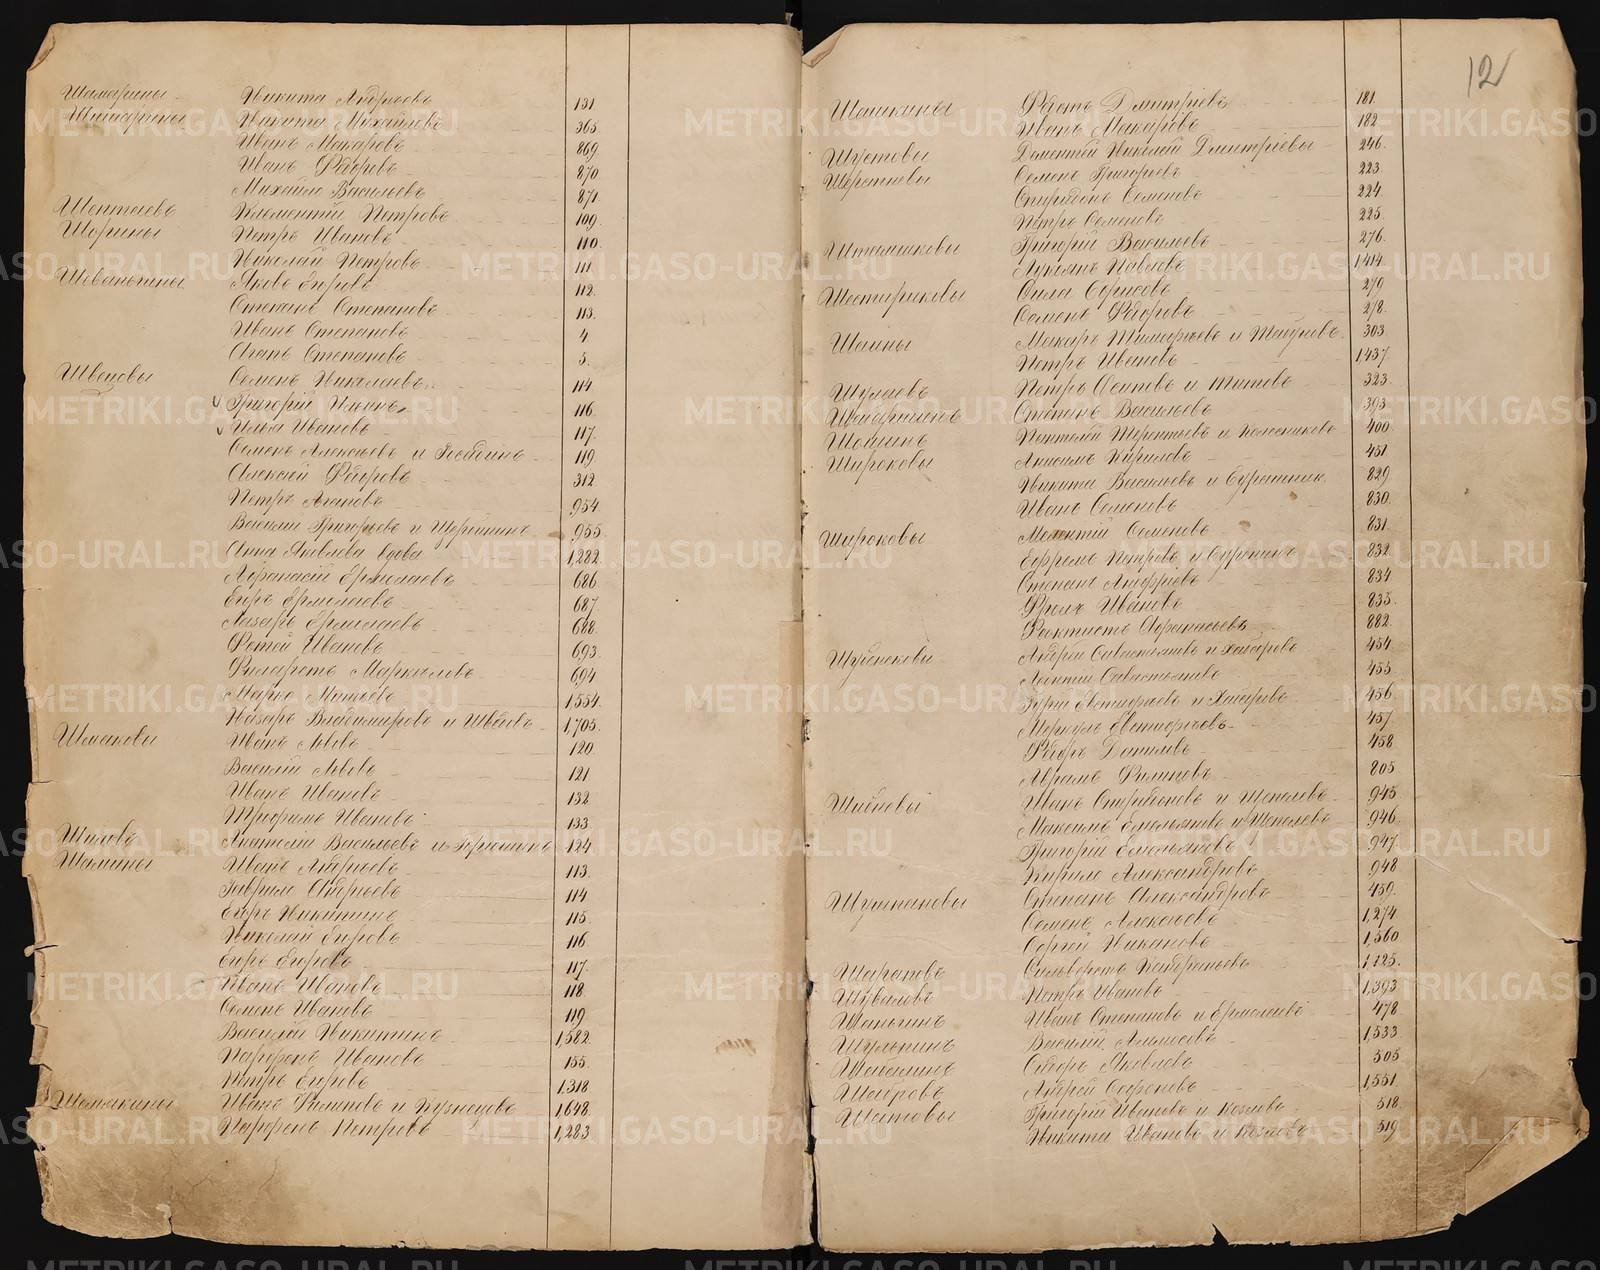 12
Шамарины Никита Андреевъ 131
Шишарины Никита Михайловъ 365.
Иванъ Макаровъ 869.
Иванъ Ѳедоровъ 870
Михайло Васильевъ 871
Шептаевъ Клементій Петровъ 109.
Шорины Петръ Ивановъ 110.
Николай Петровъ 111
Шеваньгины Яковъ Егоровъ 112.
Степанъ Степановъ 113.
Иванъ Степановъ 4
Агапъ Степановъ 5.
Швецовы Семенъ Николаевъ 114
Григорій 116.
Илья Ивановъ 117.
Семенъ Алексѣевъ и 119
Алексѣй Ѳедоровъ 312
Петръ Агаповъ 954
Василій Григорьевъ и 955
Анна Яковлева вдова 1,282.
Афанасій Ермолаевъ 686
Егоръ Ермолаевъ 687.
Лазарь Ермолаевъ 688.
Фотей Ивановъ 693.
Филаретъ Маркеловъ 694
Марко 1554.
Назаръ Владимировъ и Швецовъ 1,705.
Шмаковы Иванъ Львовъ 120.
Василій Львовъ 121
Иванъ Ивановъ 132
Трифонъ Ивановъ 133.
Шиловъ Анатолій Васильевъ и 124
Шалины Иванъ Андреевъ 113.
Гаврило Андреевъ 114
Егоръ Никитинъ 115.
Николай Егоровъ 116
Егоръ Егоровъ 117.
Иванъ Ивановъ 118
Семенъ Ивановъ 119
Василій Никитинъ 1,582.
Парфенъ Ивановъ 155.
Петръ Егоровъ 1318
Шемякины Иванъ Филиповъ и Кузнецовъ 1,648.
Парфенъ Петровъ 1,283
Шашкины Ѳедотъ Дмитріевъ 181.
Иванъ Макаровъ 182.
Шустовы Дементій Николай Дмитріевы 246.
Шерстневы Семенъ Григорьевъ 223
Спиридонъ Семеновъ 224.
Петръ Семеновъ 225.
Шталшковы Григорій Васильевъ 276.
Лукьянъ Павловъ 1,414.
Шестириковы Сила 279
Семенъ Ѳедоровъ 278.
Шаины Макаръ Тимофеевъ и 303
Петръ Ивановъ 1437.
Шулаевъ Петръ Осиповъ и Титовъ 323.
Степанъ Васильевъ 393
Шошинъ Пантелей Терентьевъ и Колесниковъ 400
Широковы Анисимъ Кириловъ 451
Никита Васильевъ и 829
Иванъ Семеновъ 830.
Широковы Семеновъ 831.
Ефремъ Петровъ и 832
Степанъ Андреевъ 834
Фролъ Ивановъ 835.
Феоктистъ Афанасьевъ 882.
Шубенковы Андрей Савастьяновъ и Хабаровъ 454
Леонтій Савастьяновъ 455
Гурій Евстафьевъ и Хабаровъ 456
Меркулъ Евстафьевъ 457.
Ѳедоръ Даниловъ 458
Абрамъ Филиповъ 805
Иванъ Спиридоновъ и Шепелевъ 945
Максимъ Емельяновъ и Шепелевъ 946.
Григорій Емельяновъ 947
Кирило Александровъ 948
Шушпановы Степанъ Александровъ 459.
Семенъ Алексѣевъ 1,274.
Сергѣй 1,360
Шараповъ Сильверстъ Кондратьевъ 1,125.
Шуваловъ Петръ Ивановъ 1,393
Шаньгинъ Иванъ Степановъ и Ермолаевъ 478
Шульгинъ Василій 1,533
Шабалинъ Ѳедоръ Яковлевъ 505
Андрей Сафоновъ 1,551.
Шатовы Григорій Ивановъ и Козловъ 518
Никита Ивановъ и Козловъ 519
METRIKI.GASO-URAL.RU